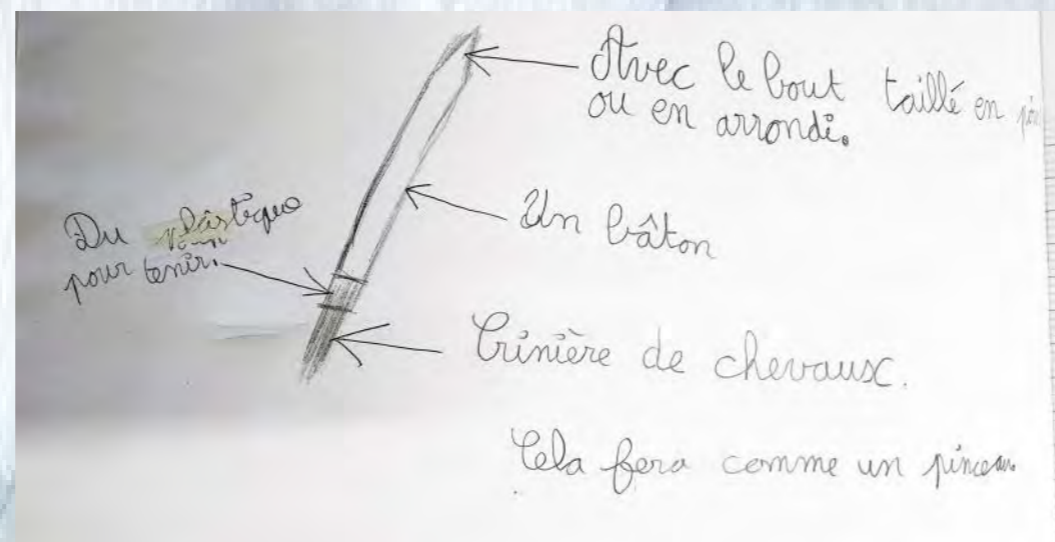 Avec le bout taillé en
ou en arrondi.
Un bâton
Du plastique
pour tenir.
Crinière de chevaux.
Cela fera comme un pinceau